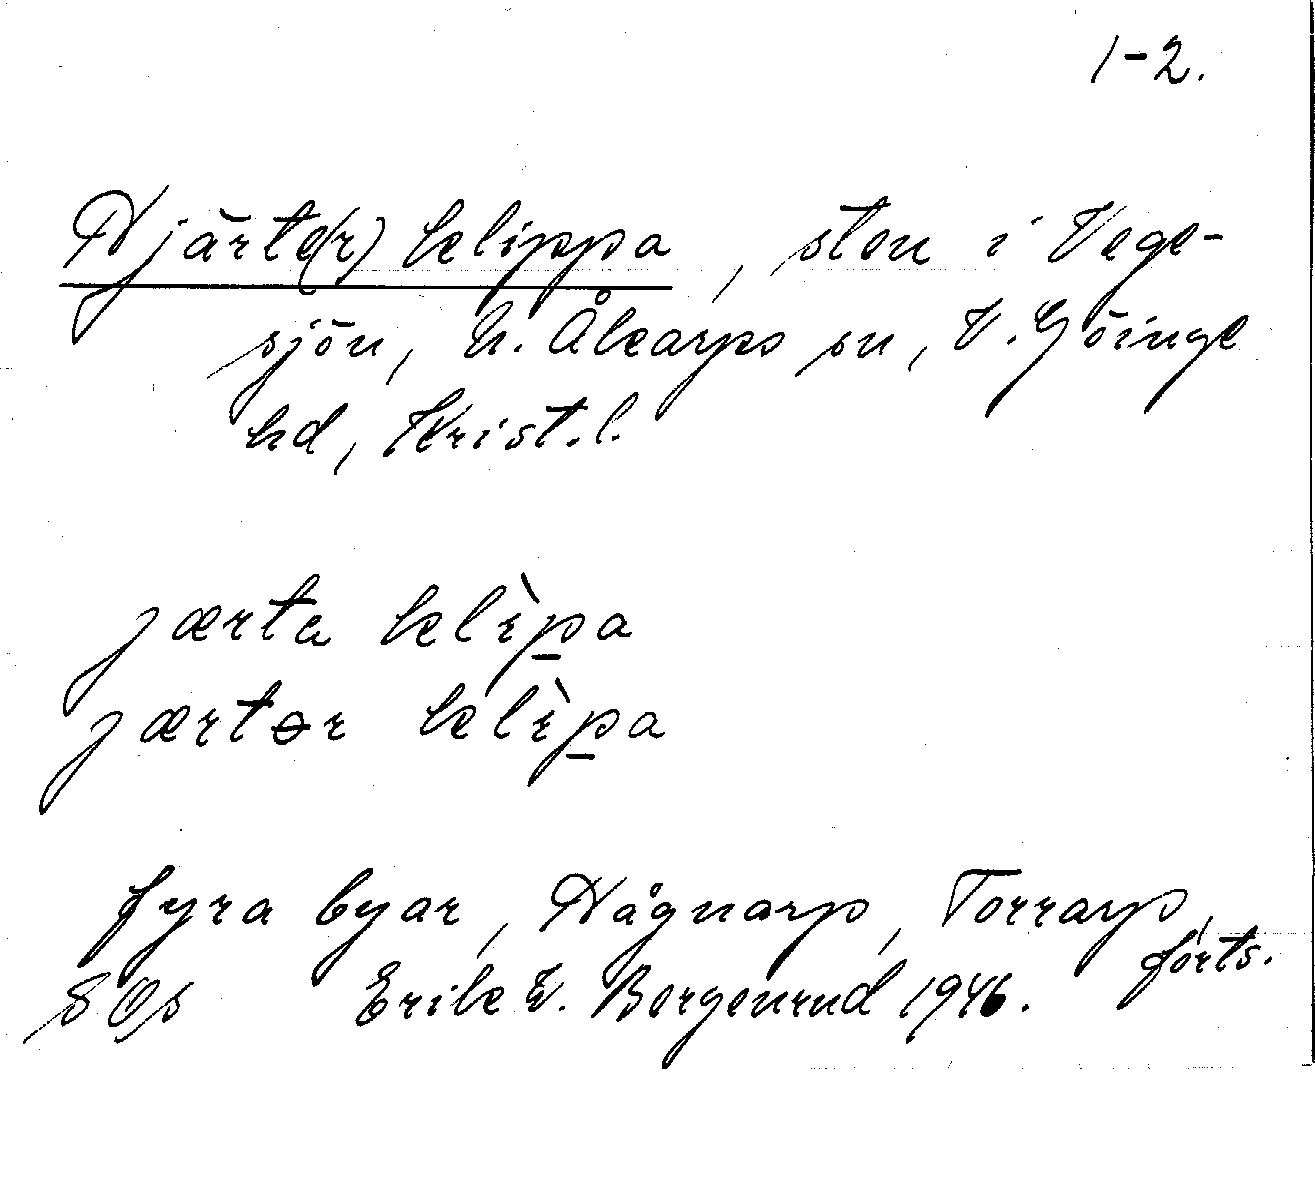 1-2.
Hjärte(r) klippa, sten i Vege-
sjön, N. Åkarps sn, V. Göinge
hd, Krist. l.
jærta klìp̲a
jærtər klìp̲a
fyra byar, Hågnarp, Torrarp,
forts.
Erik W. Bergenrud 1946.